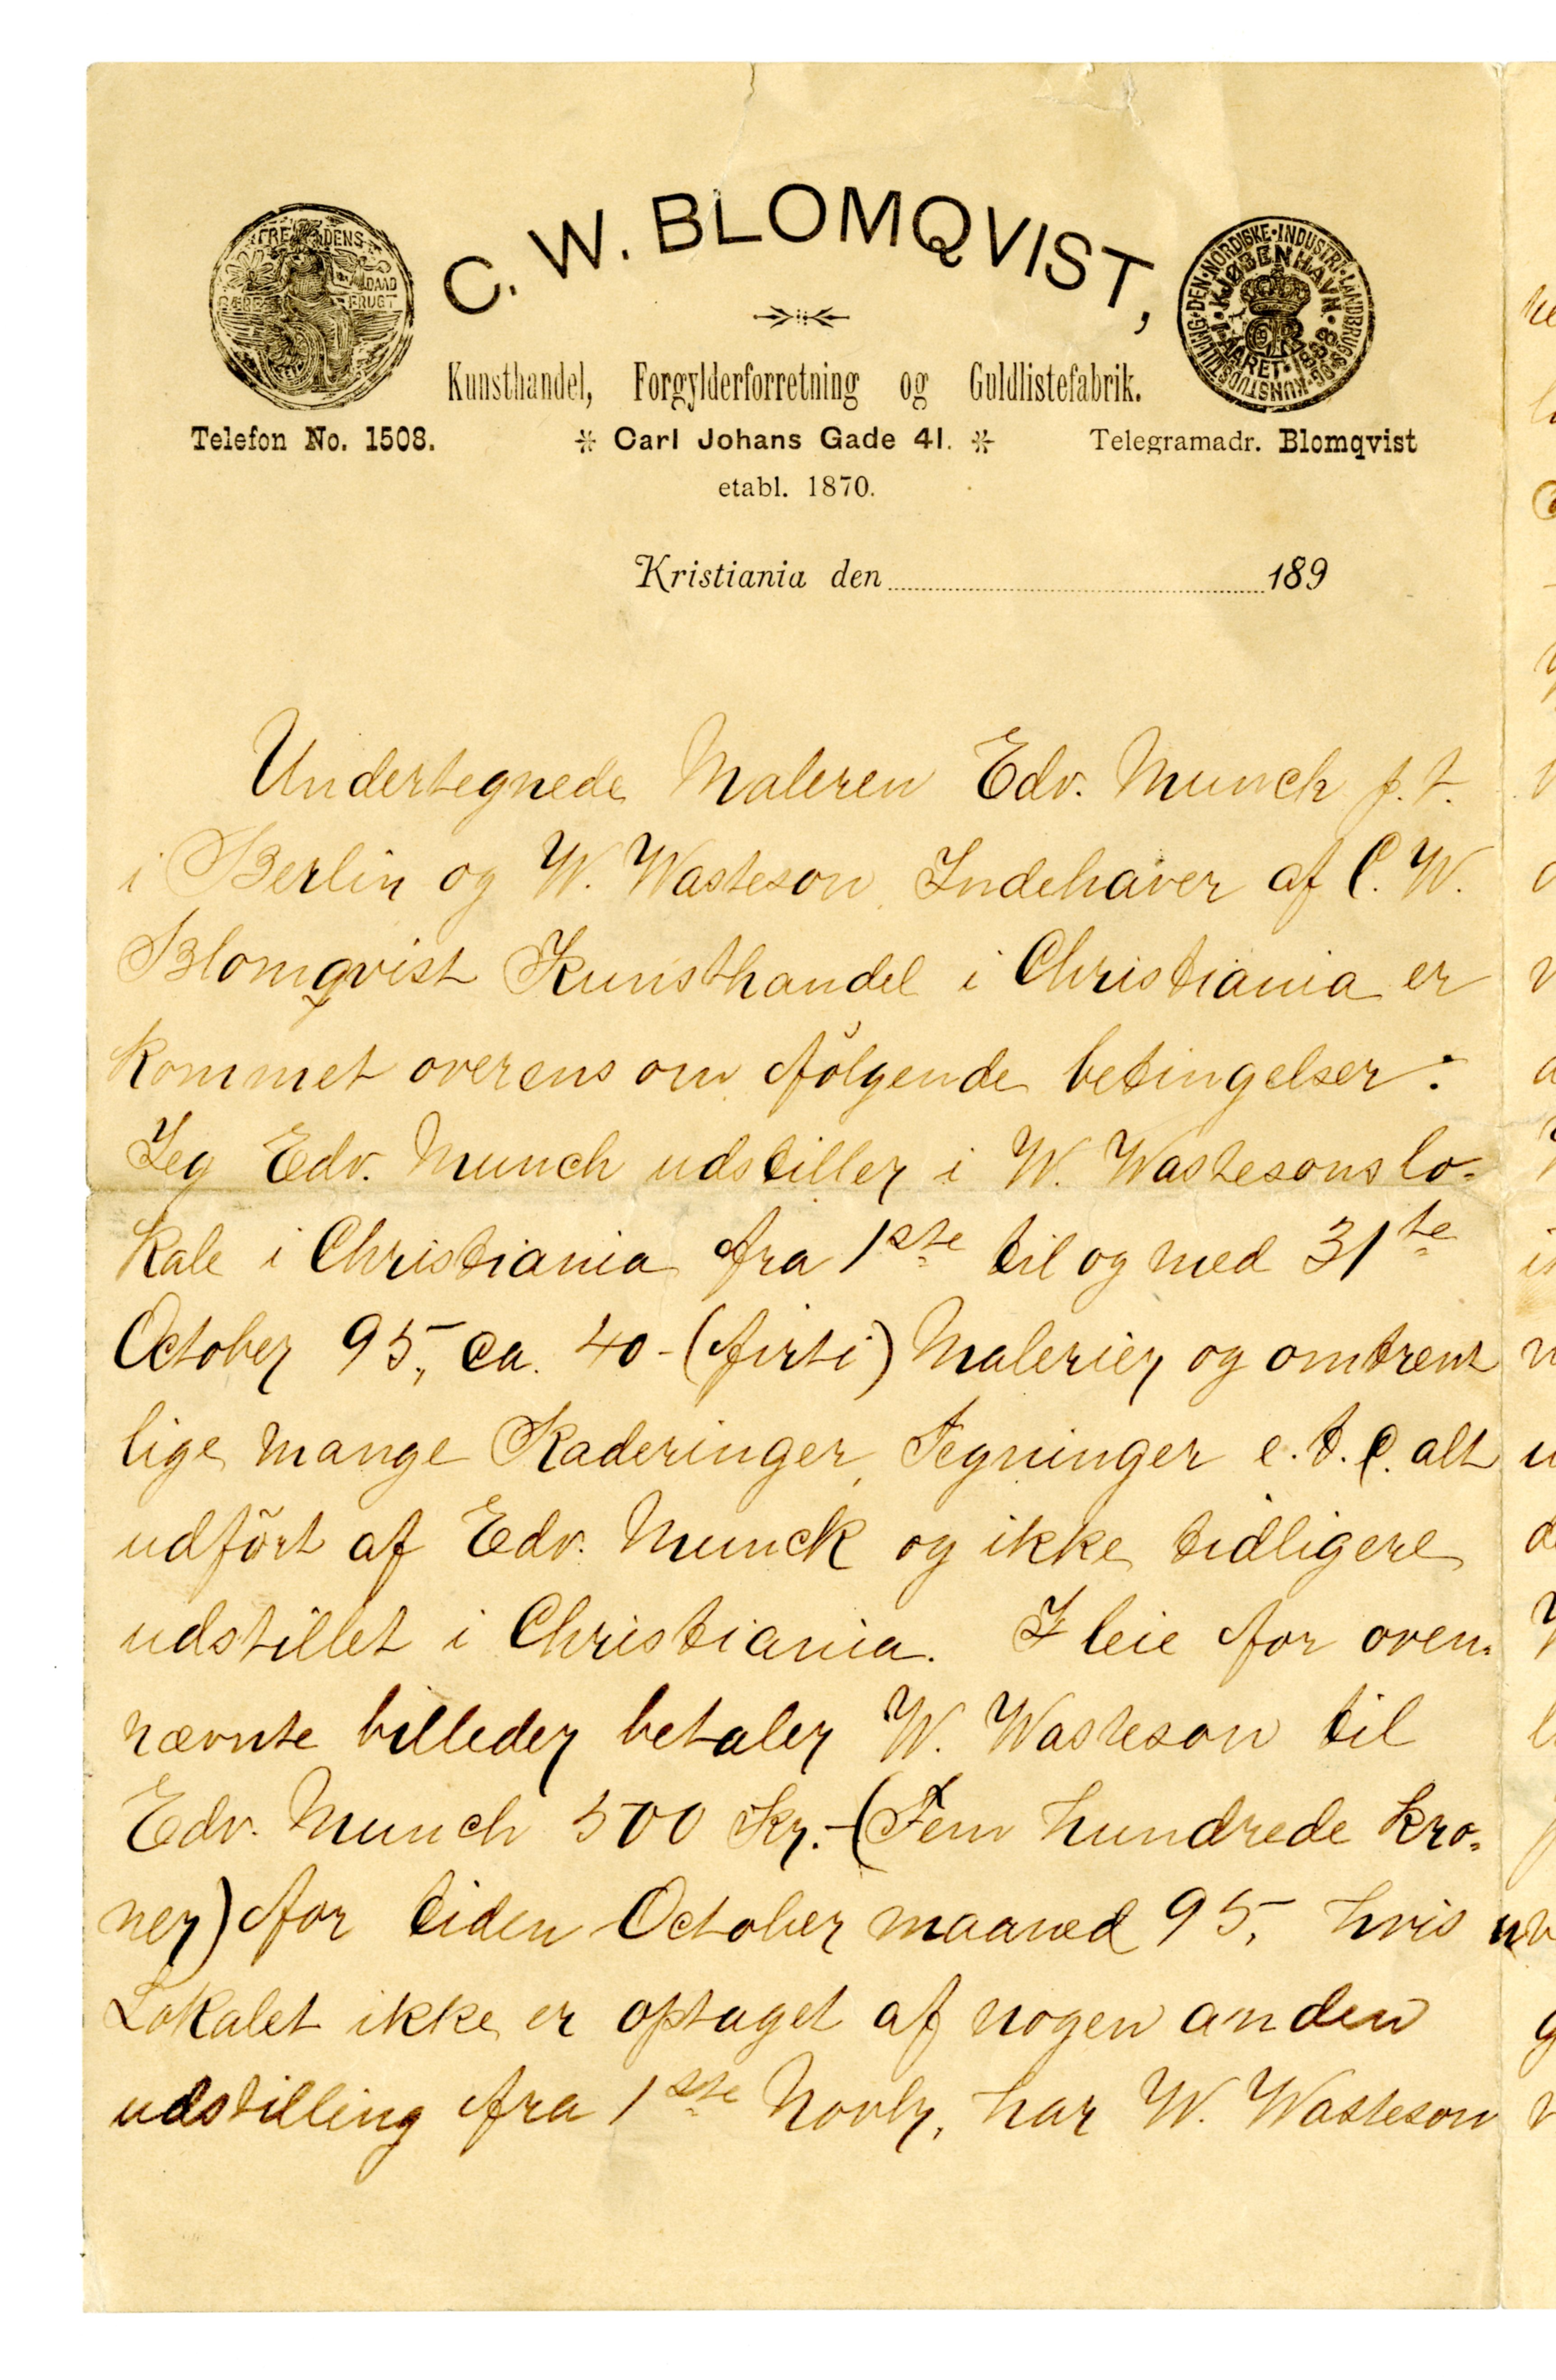 C. W. BLOMQVIST,
FREMTIDENS
DAAD
BÆRE FRUGT
DEN·NORDISKE·INDUSTRI·LANDBRUGS·OG·KUNSTUDSTILLING·
I·KJØBENHAVN·
AARET·1888·
Kunsthandel, Forgylderforretning og Guldlistefabrik.
Telefon No. 1508.
Carl Johans Gade 41.
Telegramadr. Blomqvist
etabl. 1870.
Kristiania den 189
Undertegnede Maleren Edv. Munch p.t.
i Berlin og W. Wasteson, Indehaver af C. W.
Blomqvist Kunsthandel i Christiania er
kommet overens om følgende betingelser:
Jeg Edv. Munch udstiller i W. Wastesons lo-
kale i Christiania fra 1ste til og med 31te
October 95, ca. 40-(firti) Malerier og omtrent
lige mange Raderinger, Tegninger e.t.c. alt
udført af Edv. Munck og ikke tidligere
udstillet i Christiania. I leie for oven-
nævnte billeder betaler W. Wasteson til
Edv. Munch 500 Kr.-(Fem hundrede kro-
ner) for tiden October maaned 95, hvis
Lokalet ikke er optaget af nogen anden
udstilling fra 1ste Novbr, har W. Wasteson